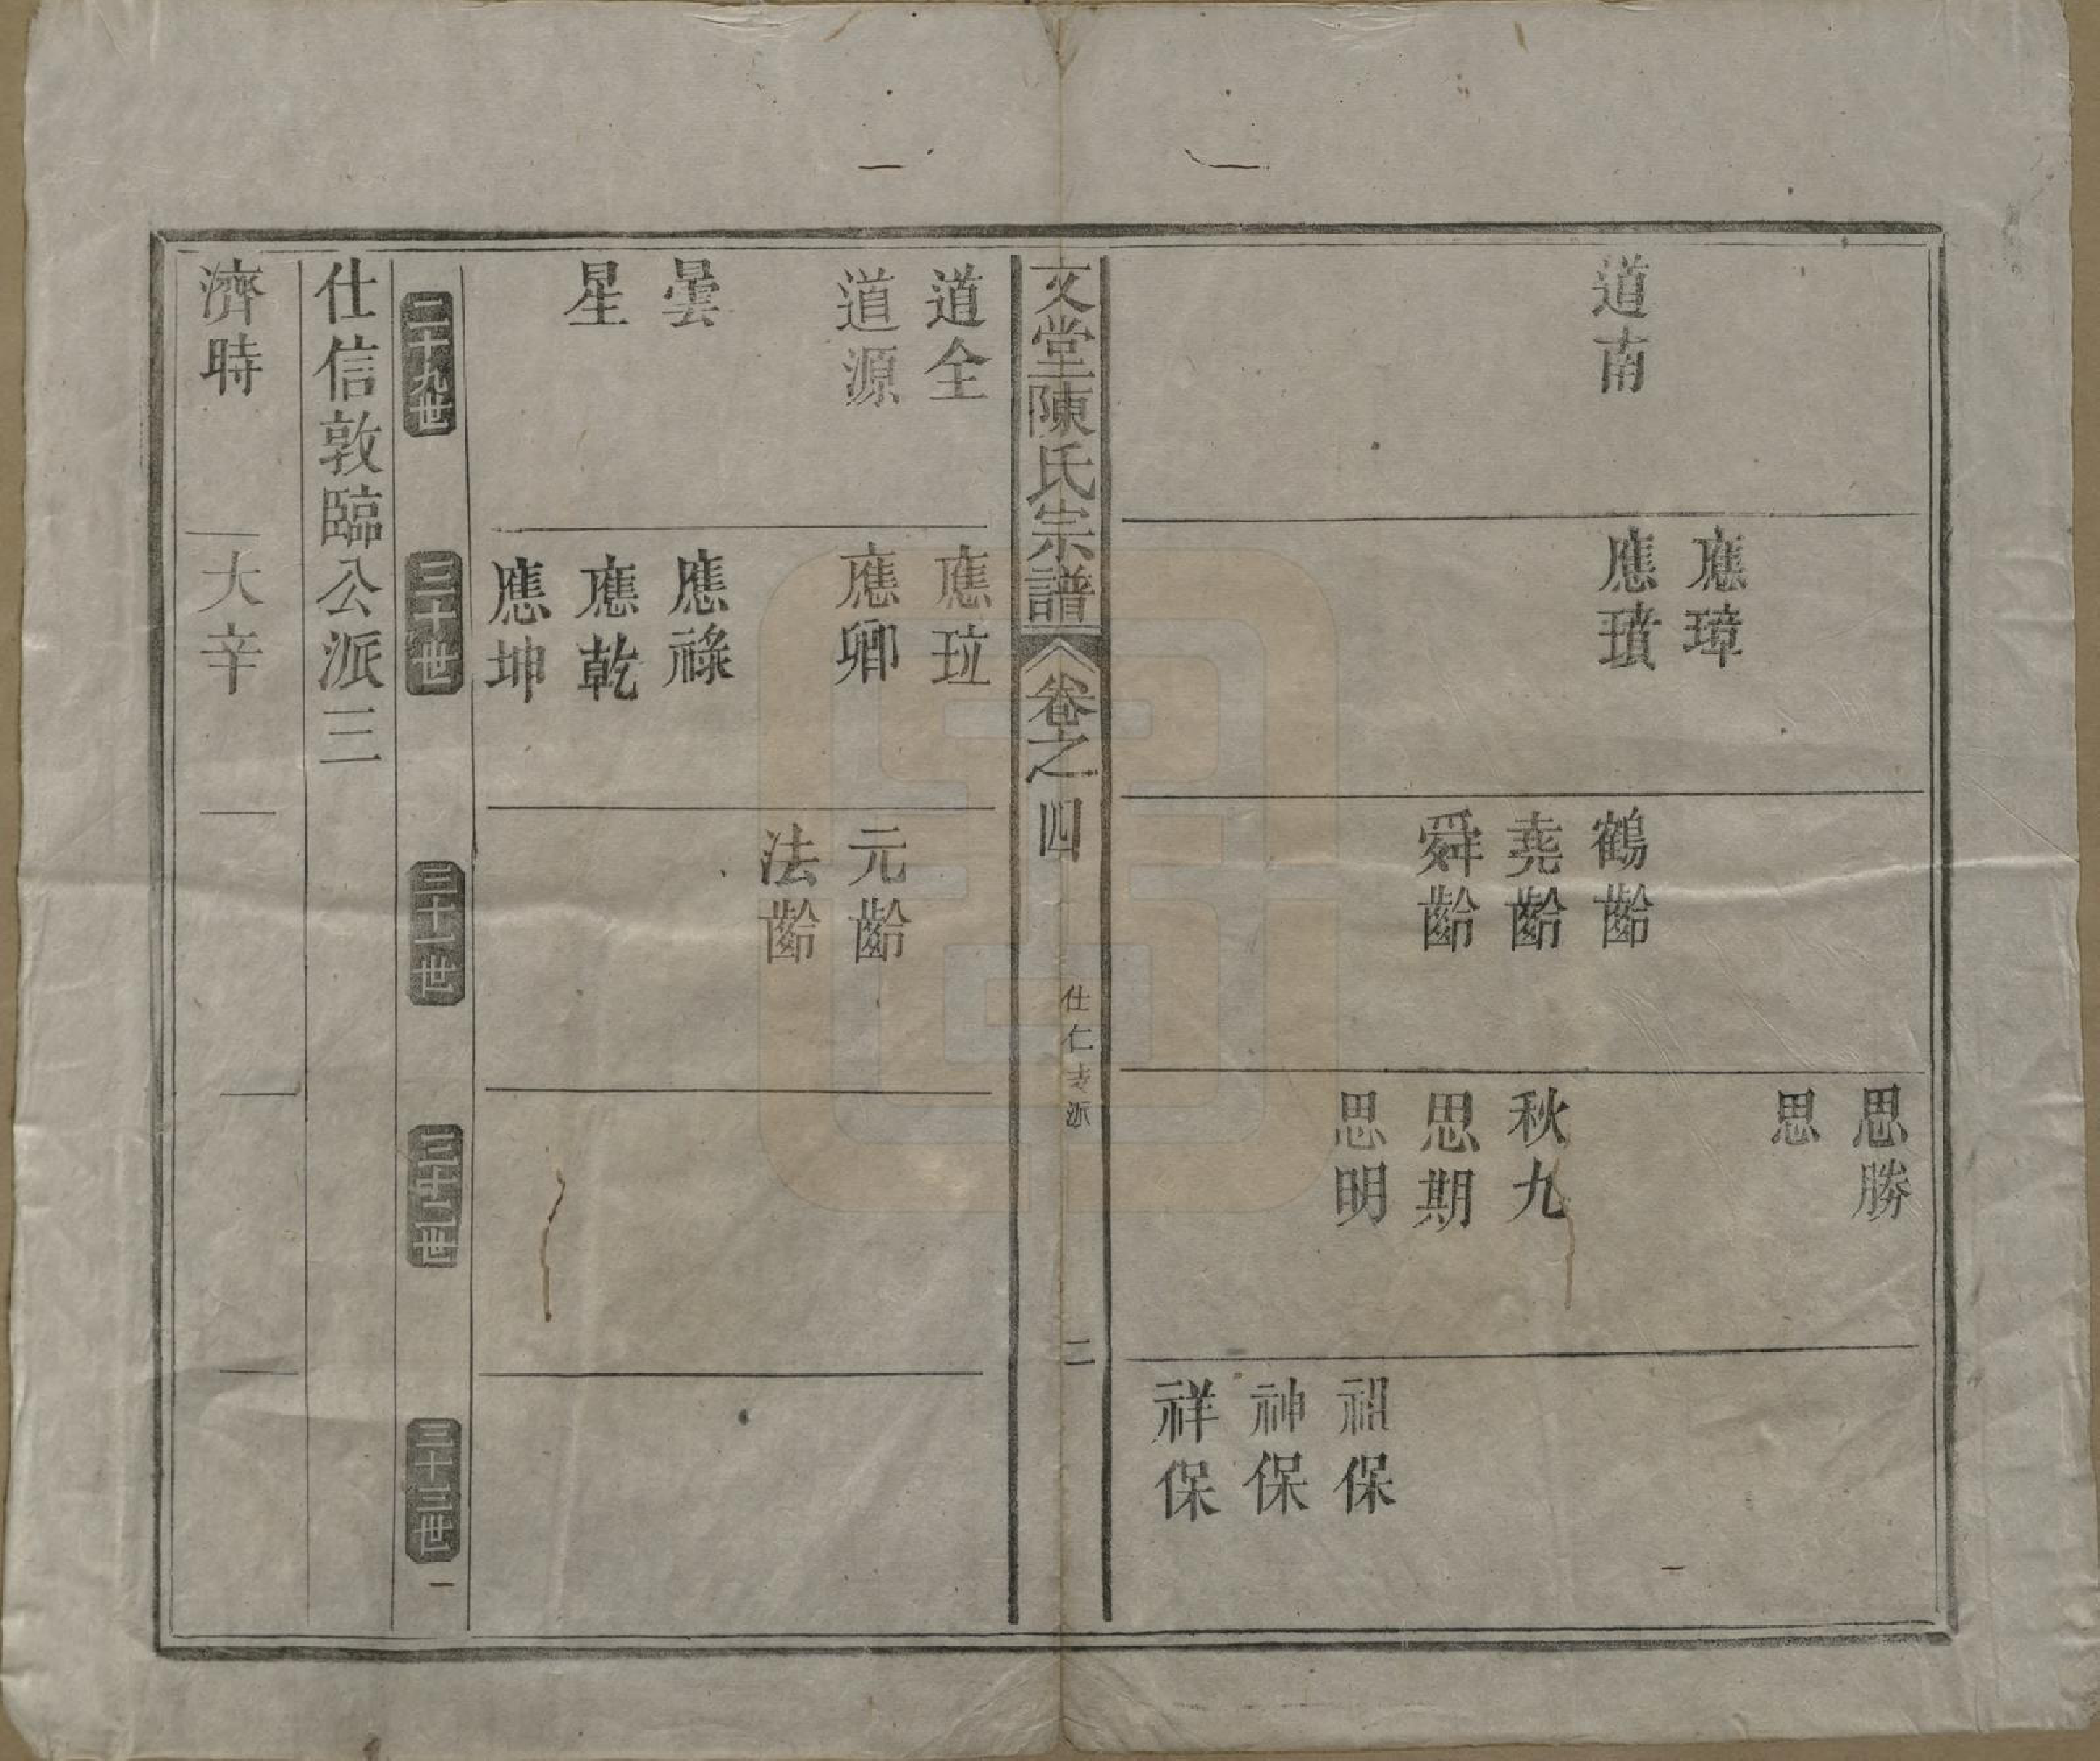 道南
應璋
應璸
鶴齡
堯齡
舜齡
思勝
思
秋九
思期
思明
祖保
神保
祥保
文堂陳氏宗譜
卷之四
仕仁支派
二
道全
道源
曇
星
應玹
應卿
應祿
應乾
應坤
元齡
法齡
二十九世
三十世
三十一世
三十二世
三十三世
仕信敦臨公派三
濟時
大辛